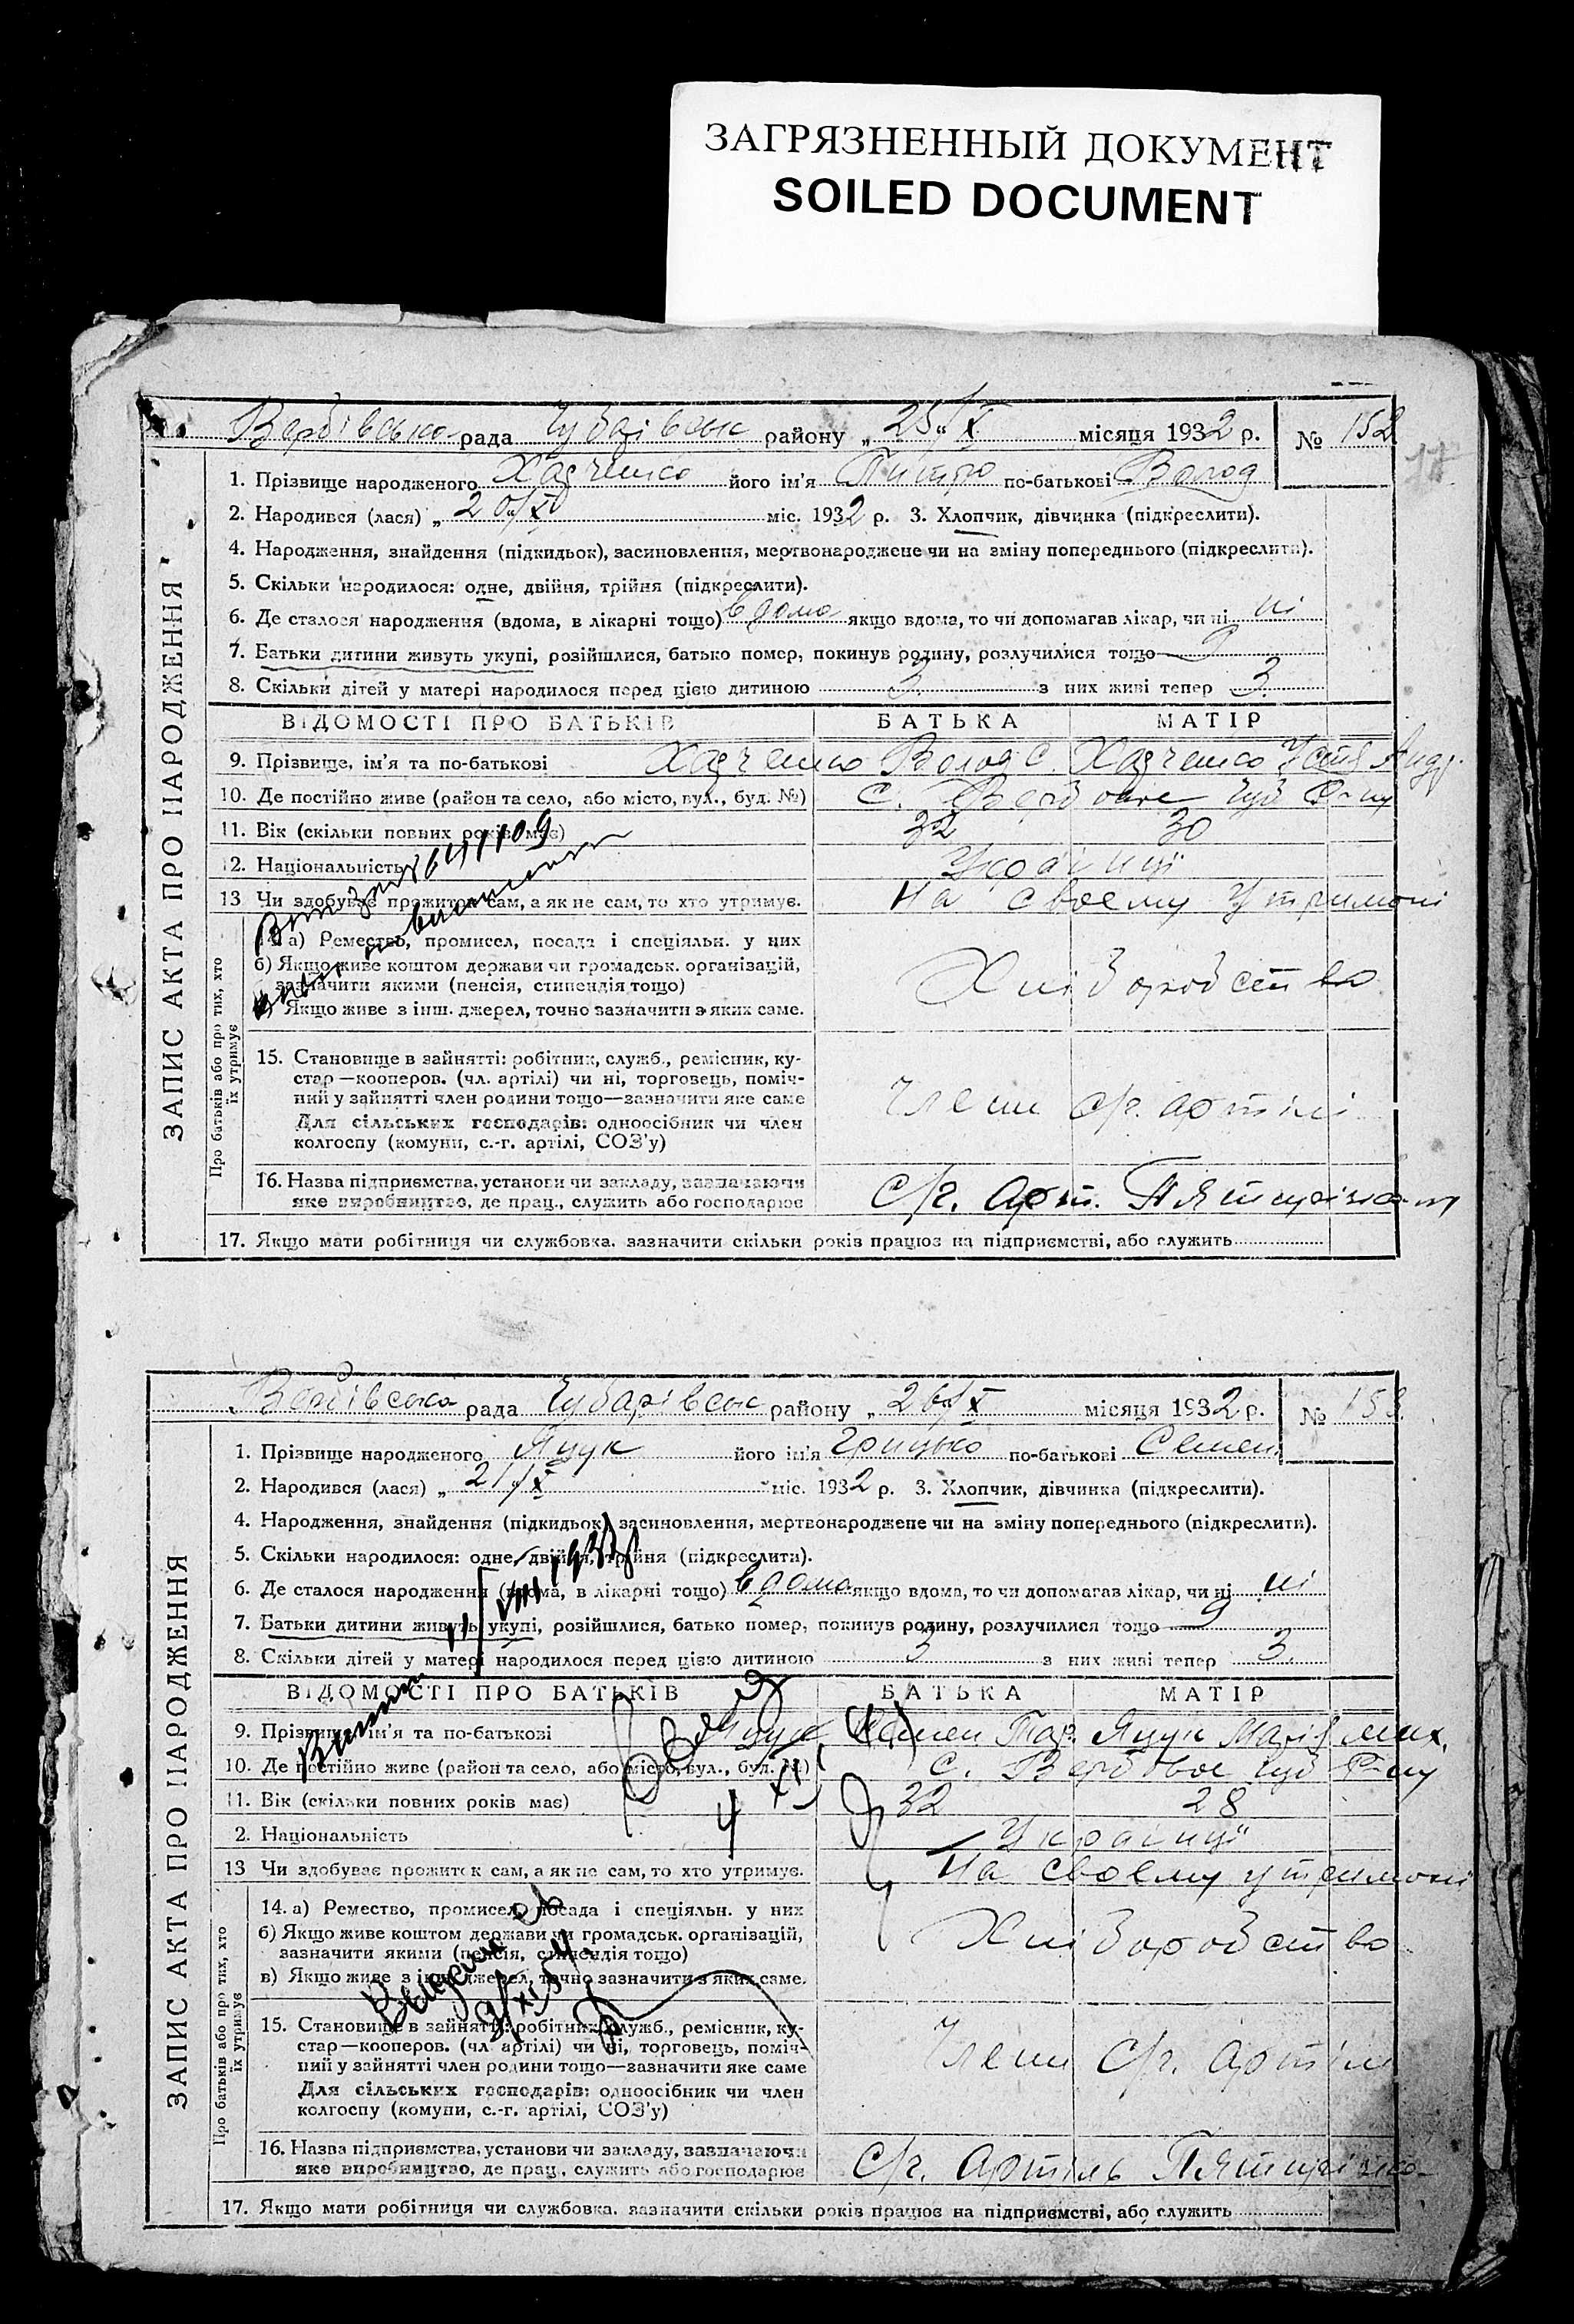 ЗАГРЯЗНЕННЫЙ ДОКУМЕНТ
SOILED DOCUMENT
Вербівська рада Чубарівськ району „ 25/X місяця 1932 р. № 152
ЗАПИС АКТА ПРО НАРОДЖЕННЯ
1. Прізвище народженого його ім'я по-батькові Волод
2. Народився (лася) „ 20/X міс. 1932 р. 3. Хлопчик, дівчинка (підкреслити).
4. Народження, знайдення (підкидьок), засиновлення, мертвонароджене чи на зміну попереднього (підкреслити).
5. Скільки народилося: одне, двійня, трійня (підкреслити).
6. Де сталося народження (вдома, в лікарні тощо) вдома якщо вдома, то чи допомагав лікар, чи ні ні
7. Батьки дитини живуть укупі, розійшлися, батько помер, покинув родину, розлучилися тощо
8. Скільки дітей у матері народилося перед цією дитиною 3 з них живі тепер 3.
ВІДОМОСТІ ПРО БАТЬКІВ БАТЬКА МАТІР
9. Прізвище, ім'я та по-батькові Волод С. Андр.
10. Де постійно живе (район та село, або місто, вул., буд. №) С. Вербове Чуб Р-ну
11. Вік (скільки повних років має) 32 30
12. Національність Українці
13 Чи здобуває прожиток сам, а як не сам, то хто утримує. На своему утримані
Про батьків або про тих, хто їх утримує
14. а) Ремество, промисел, посада і спеціяльн. у них
б) Якщо живе коштом держави чи громадськ. організацій,
зазначити якими (пенсія, стипендія тощо) Хліборобство
в) Якщо живе з інш. джерел, точно зазначити з яких саме.
15. Становище в зайнятті: робітник, служб., ремісник, ку-
стар—кооперов. (чл. артілі) чи ні, торговець, поміч-
ний у зайнятті член родини тощо—зазначити яке саме Член с/г. артілі
Для сільських господарів: одноосібник чи член
колгоспу (комуни, с.-г. артілі, СОЗ'у)
16. Назва підприємства, установи чи закладу, зазначаючи
яке виробництво, де прац., служить або господарює С/г. Арт.
17. Якщо мати робітниця чи службовка. зазначити скільки років працює на підприємстві, або служить
Вербівська рада Чубарівськ району „ 26/X місяця 1932 р. № 153.
ЗАПИС АКТА ПРО НАРОДЖЕННЯ
1. Прізвище народженого Яцук його ім'я Грицько по-батькові Семен.
2. Народився (лася) „ 21/X міс. 1932 р. 3. Хлопчик, дівчинка (підкреслити).
4. Народження, знайдення (підкидьок) засиновлення, мертвонароджене чи на зміну попереднього (підкреслити).
5. Скільки народилося: одне, двійня, трійня (підкреслити).
6. Де сталося народження (вдома, в лікарні тощо) вдома якщо вдома, то чи допомагав лікар, чи ні ні
7. Батьки дитини живуть укупі, розійшлися, батько помер, покинув родину, розлучилися тощо
8. Скільки дітей у матері народилося перед цією дитиною 3 з них живі тепер 3.
ВІДОМОСТІ ПРО БАТЬКІВ БАТЬКА МАТІР
9. Прізвище, ім'я та по-батькові Яцук Семен Тар. Яцук Марія Мих.
10. Де постійно живе (район та село, або місто, вул., буд. №) С. Вербове Чуб Р-ну
11. Вік (скільки повних років має) 32 28
2. Національність Українці
13 Чи здобуває прожиток сам, а як не сам, то хто утримує. На своему утримані
Про батьків або про тих, хто їх утримує
14. а) Ремество, промисел, посада і спеціяльн. у них
б) Якщо живе коштом держави чи громадськ. організацій,
зазначити якими (пенсія, стипендія тощо) Хліборобство
в) Якщо живе з інш. джерел, точно зазначити з яких саме.
15. Становище в зайнятті: робітник, служб., ремісник, ку-
стар—кооперов. (чл. артілі) чи ні, торговець, поміч-
ний у зайнятті член родини тощо—зазначити яке саме Член с/г. артілі
Для сільських господарів: одноосібник чи член
колгоспу (комуни, с.-г. артілі, СОЗ'у)
16. Назва підприємства, установи чи закладу, зазначаючи
яке виробництво, де прац., служить або господарює С/г. Артіль
17. Якщо мати робітниця чи службовка. зазначити скільки років працює на підприємстві, або служить